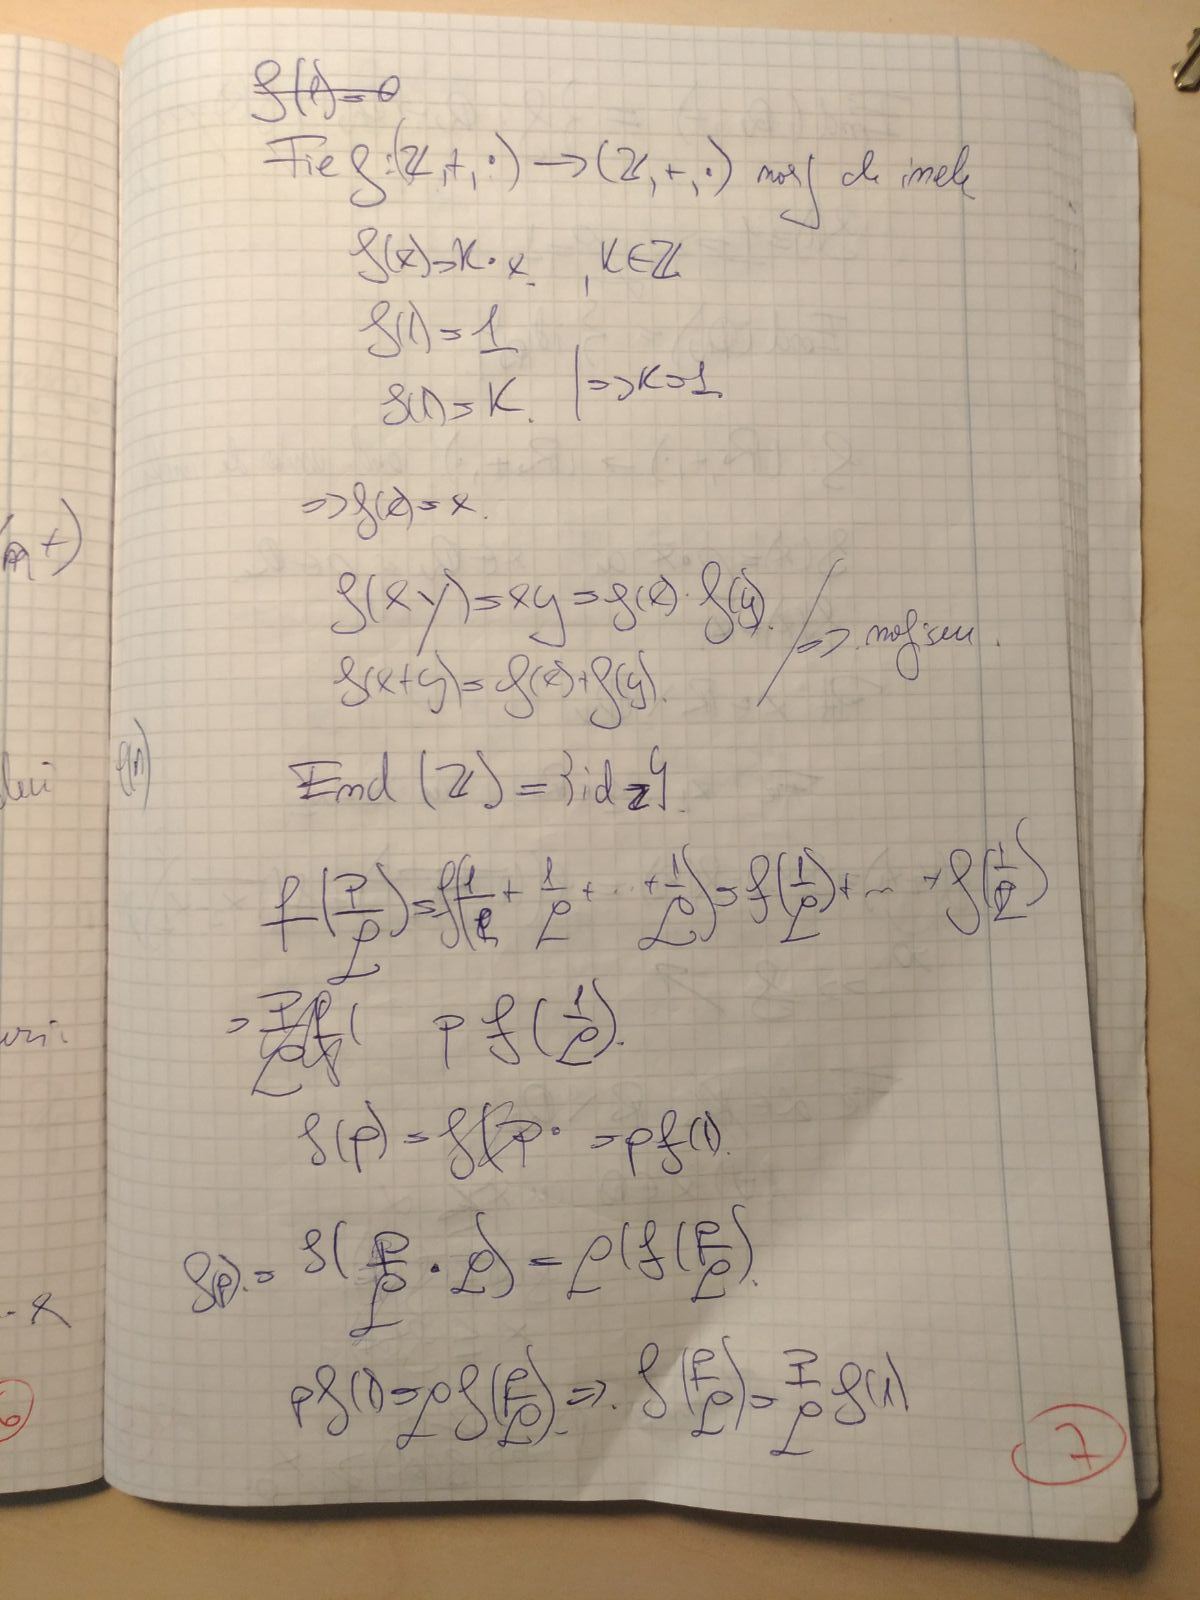 f(1)=0
Fie f:(ℤ,+,·) → (ℤ,+,·) morf de inele
f(x)=K·x , K∈ℤ
f(1)=1
f(1)=K. | => K=1
=> f(x)=x.
f(xy)=xy=f(x)·f(y).
f(x+y)=f(x)+f(y). / =>
f(n)
End(ℤ)={id ℤ}.
f(p/q)=f(1/q+1/q+...+1/q)=f(1/q)+...+f(1/q)
= p f(1/q).
f(p)=f(p· =pf(1).
f(p)= f(p/q · q)=q(f(p/q).
pf(1)=qf(p/q). => f(p/q)=p/q f(1)
7
+)
·x
6